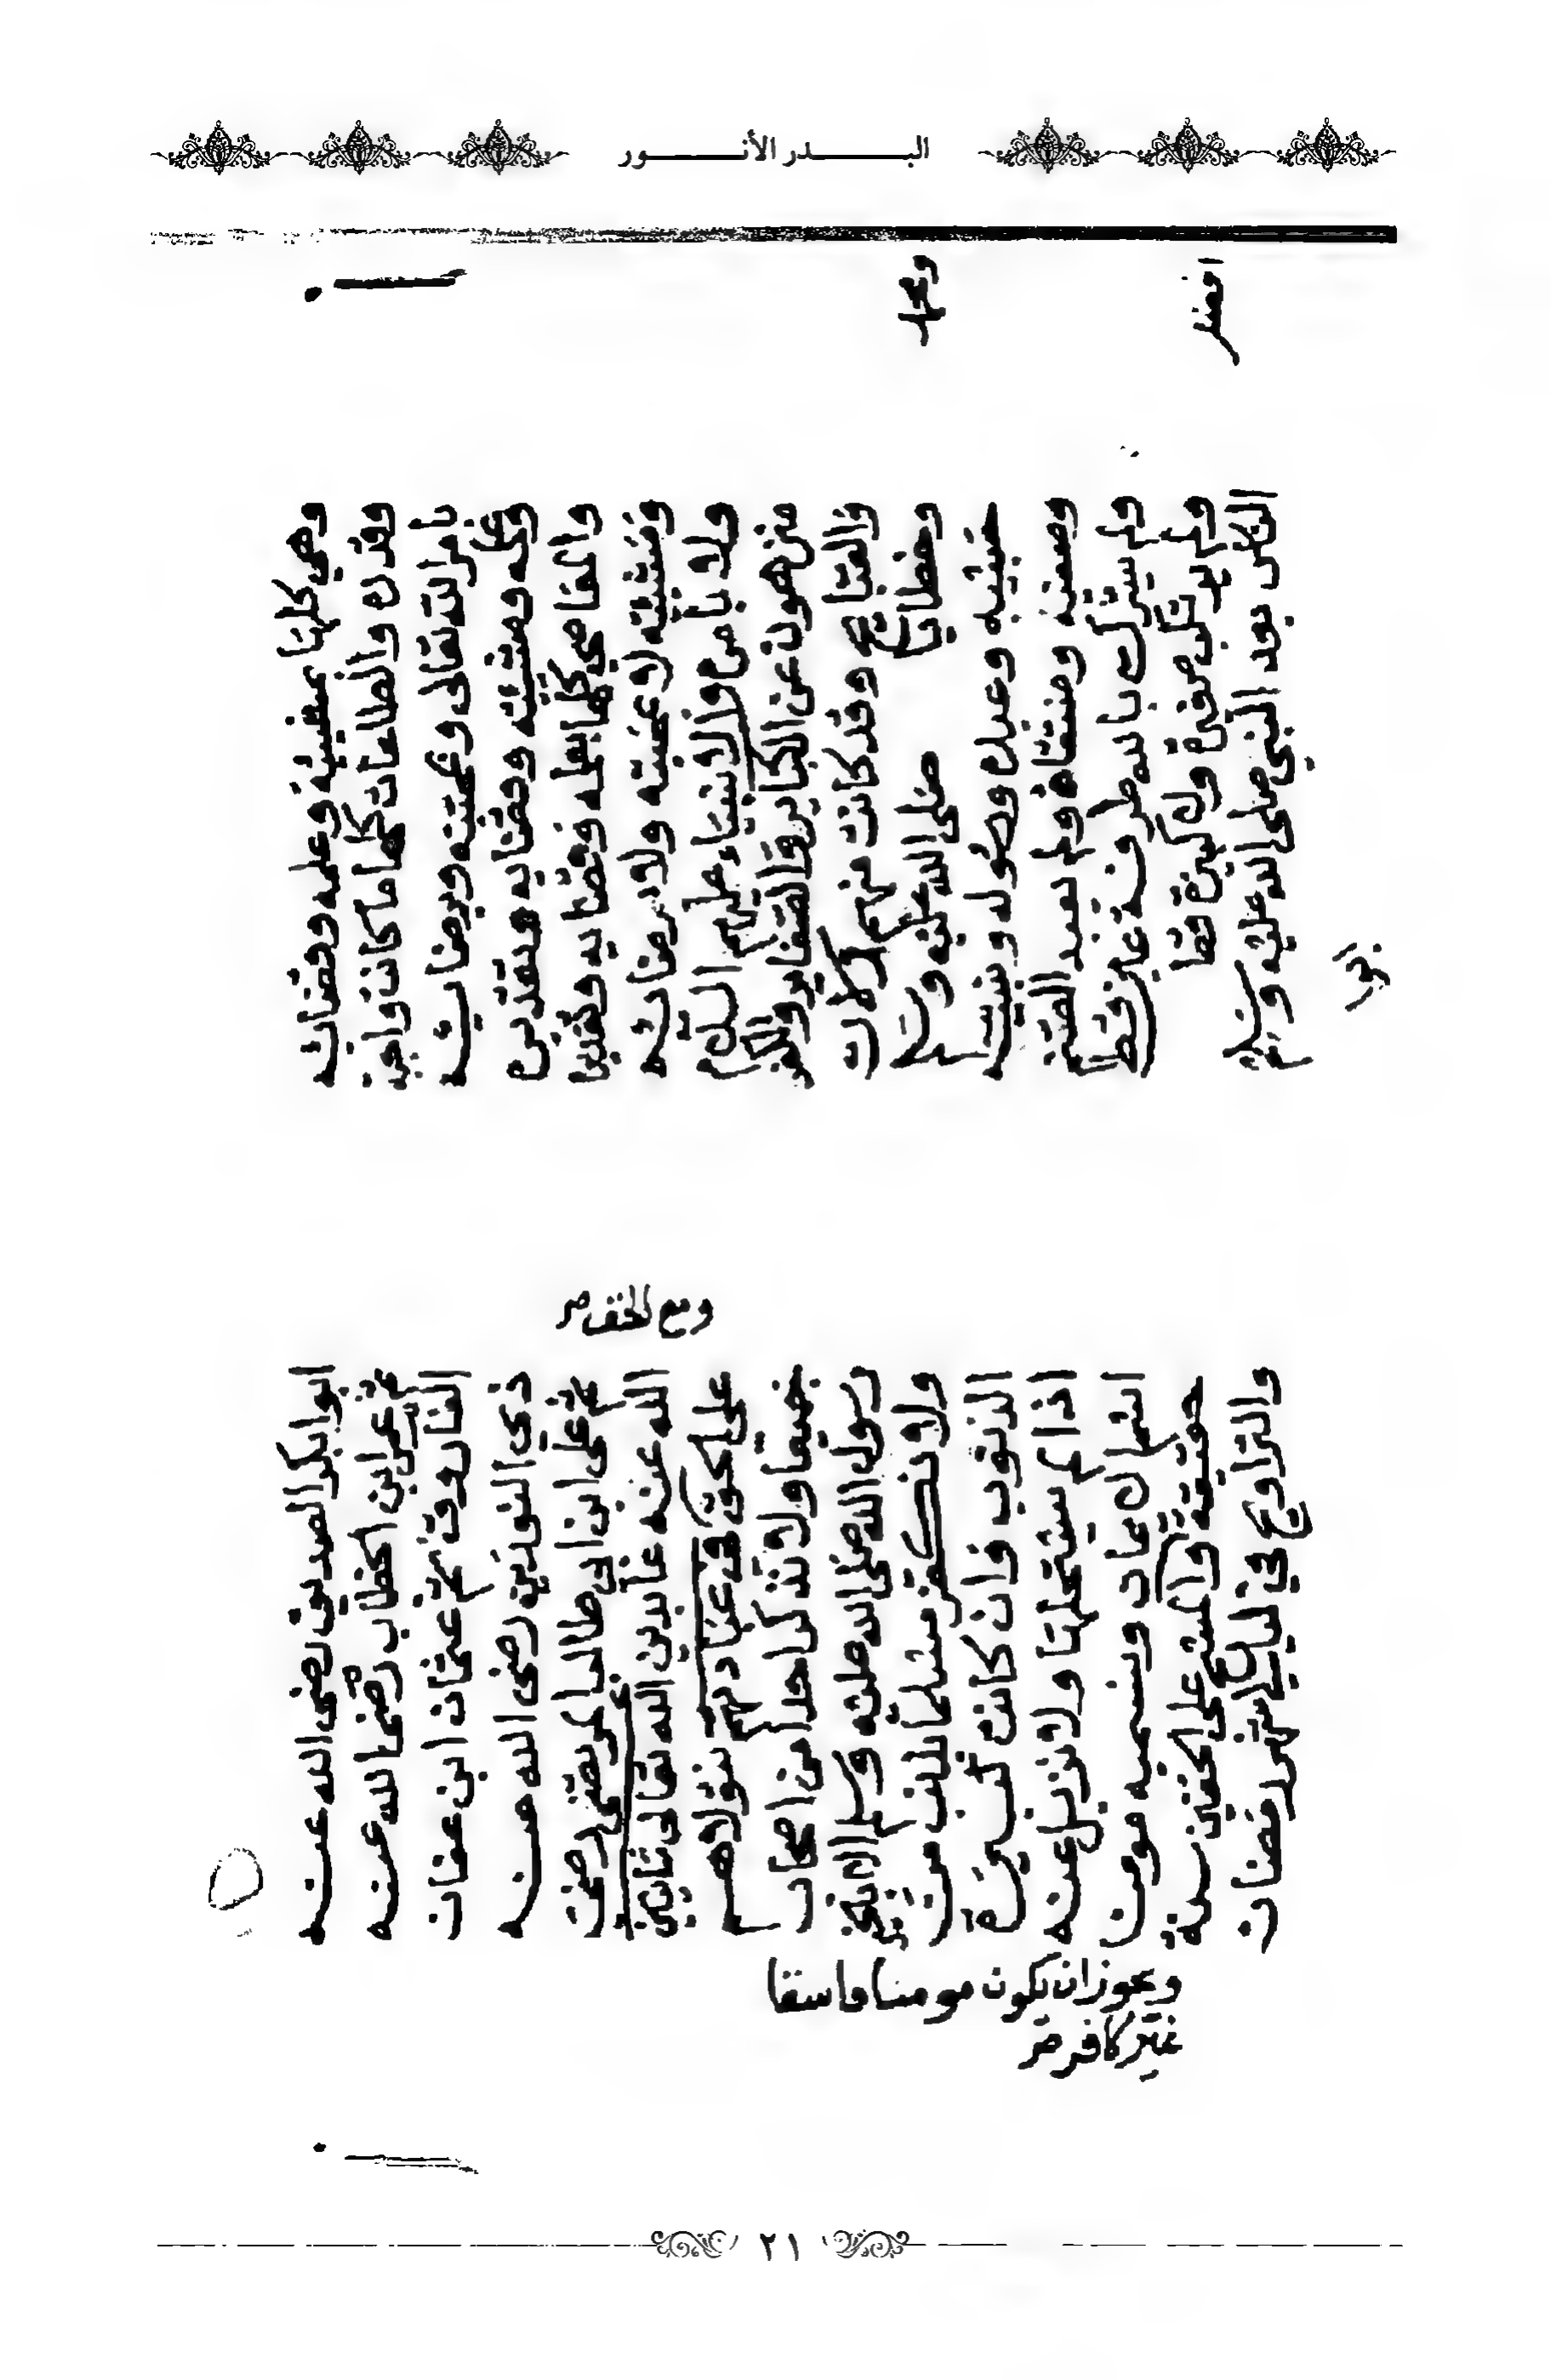 البدر الأنور
وهي كلها بمشيئته وعلمه وقضائه
وقدره والطاعات كلها ما كانت واجبة
بامر الله تعالى وبمحبته وبرضايه
وعلمه ومشيئته وقضايه وتقديره
والمعاصي كلها بعلمه وقضايه وتقديره
ومشيئته لا بمحبته ولا برضائه
ولا بامره والانبياء عليهم السلام
منزهون عن الكباير والصغاير والكفر
والقبائح وقد كانت منهم زلات
وخطايا ومحمد صلى الله عليه وسلم
حبيبه وعبده ورسوله ونبيه
وصفيه ومنتقاه ولم يعبد الصنم
ولم يشرك بالله طرفة عين قط
ولم يرتكب صغيرة ولا كبيرة قط
افضل
الناس بعد النبي صلى الله عليه وسلم
ابو
ابوا بكر الصديق رضى الله عنه
ثم عمر ابن الخطاب رضى الله عنه
الفاروق ثم عثمان ابن عفان
ذي النورين رضى الله عنه
ثم على ابن ابي طالب المرتضى رضى
الله عنه عابدين الله تعالى ثابتين
على الحق ومع الحق نتولاهم
جميعا ولا نذكر احدا من اصحاب
رسول الله صلى الله عليه وسلم الا بخير
ولا نكفر مسلما بذنب من
الذنوب وان كانت كبيرة
اذا لم يستحلها ولا نزيل عنه
اسم الايمان ونسميه مومن
حقيقة والمسح على الخفين سنة
والتراويح في ليالي شهر رمضان
ويجوز ان يكون مومنا فاسقا
غير كافر
٢١